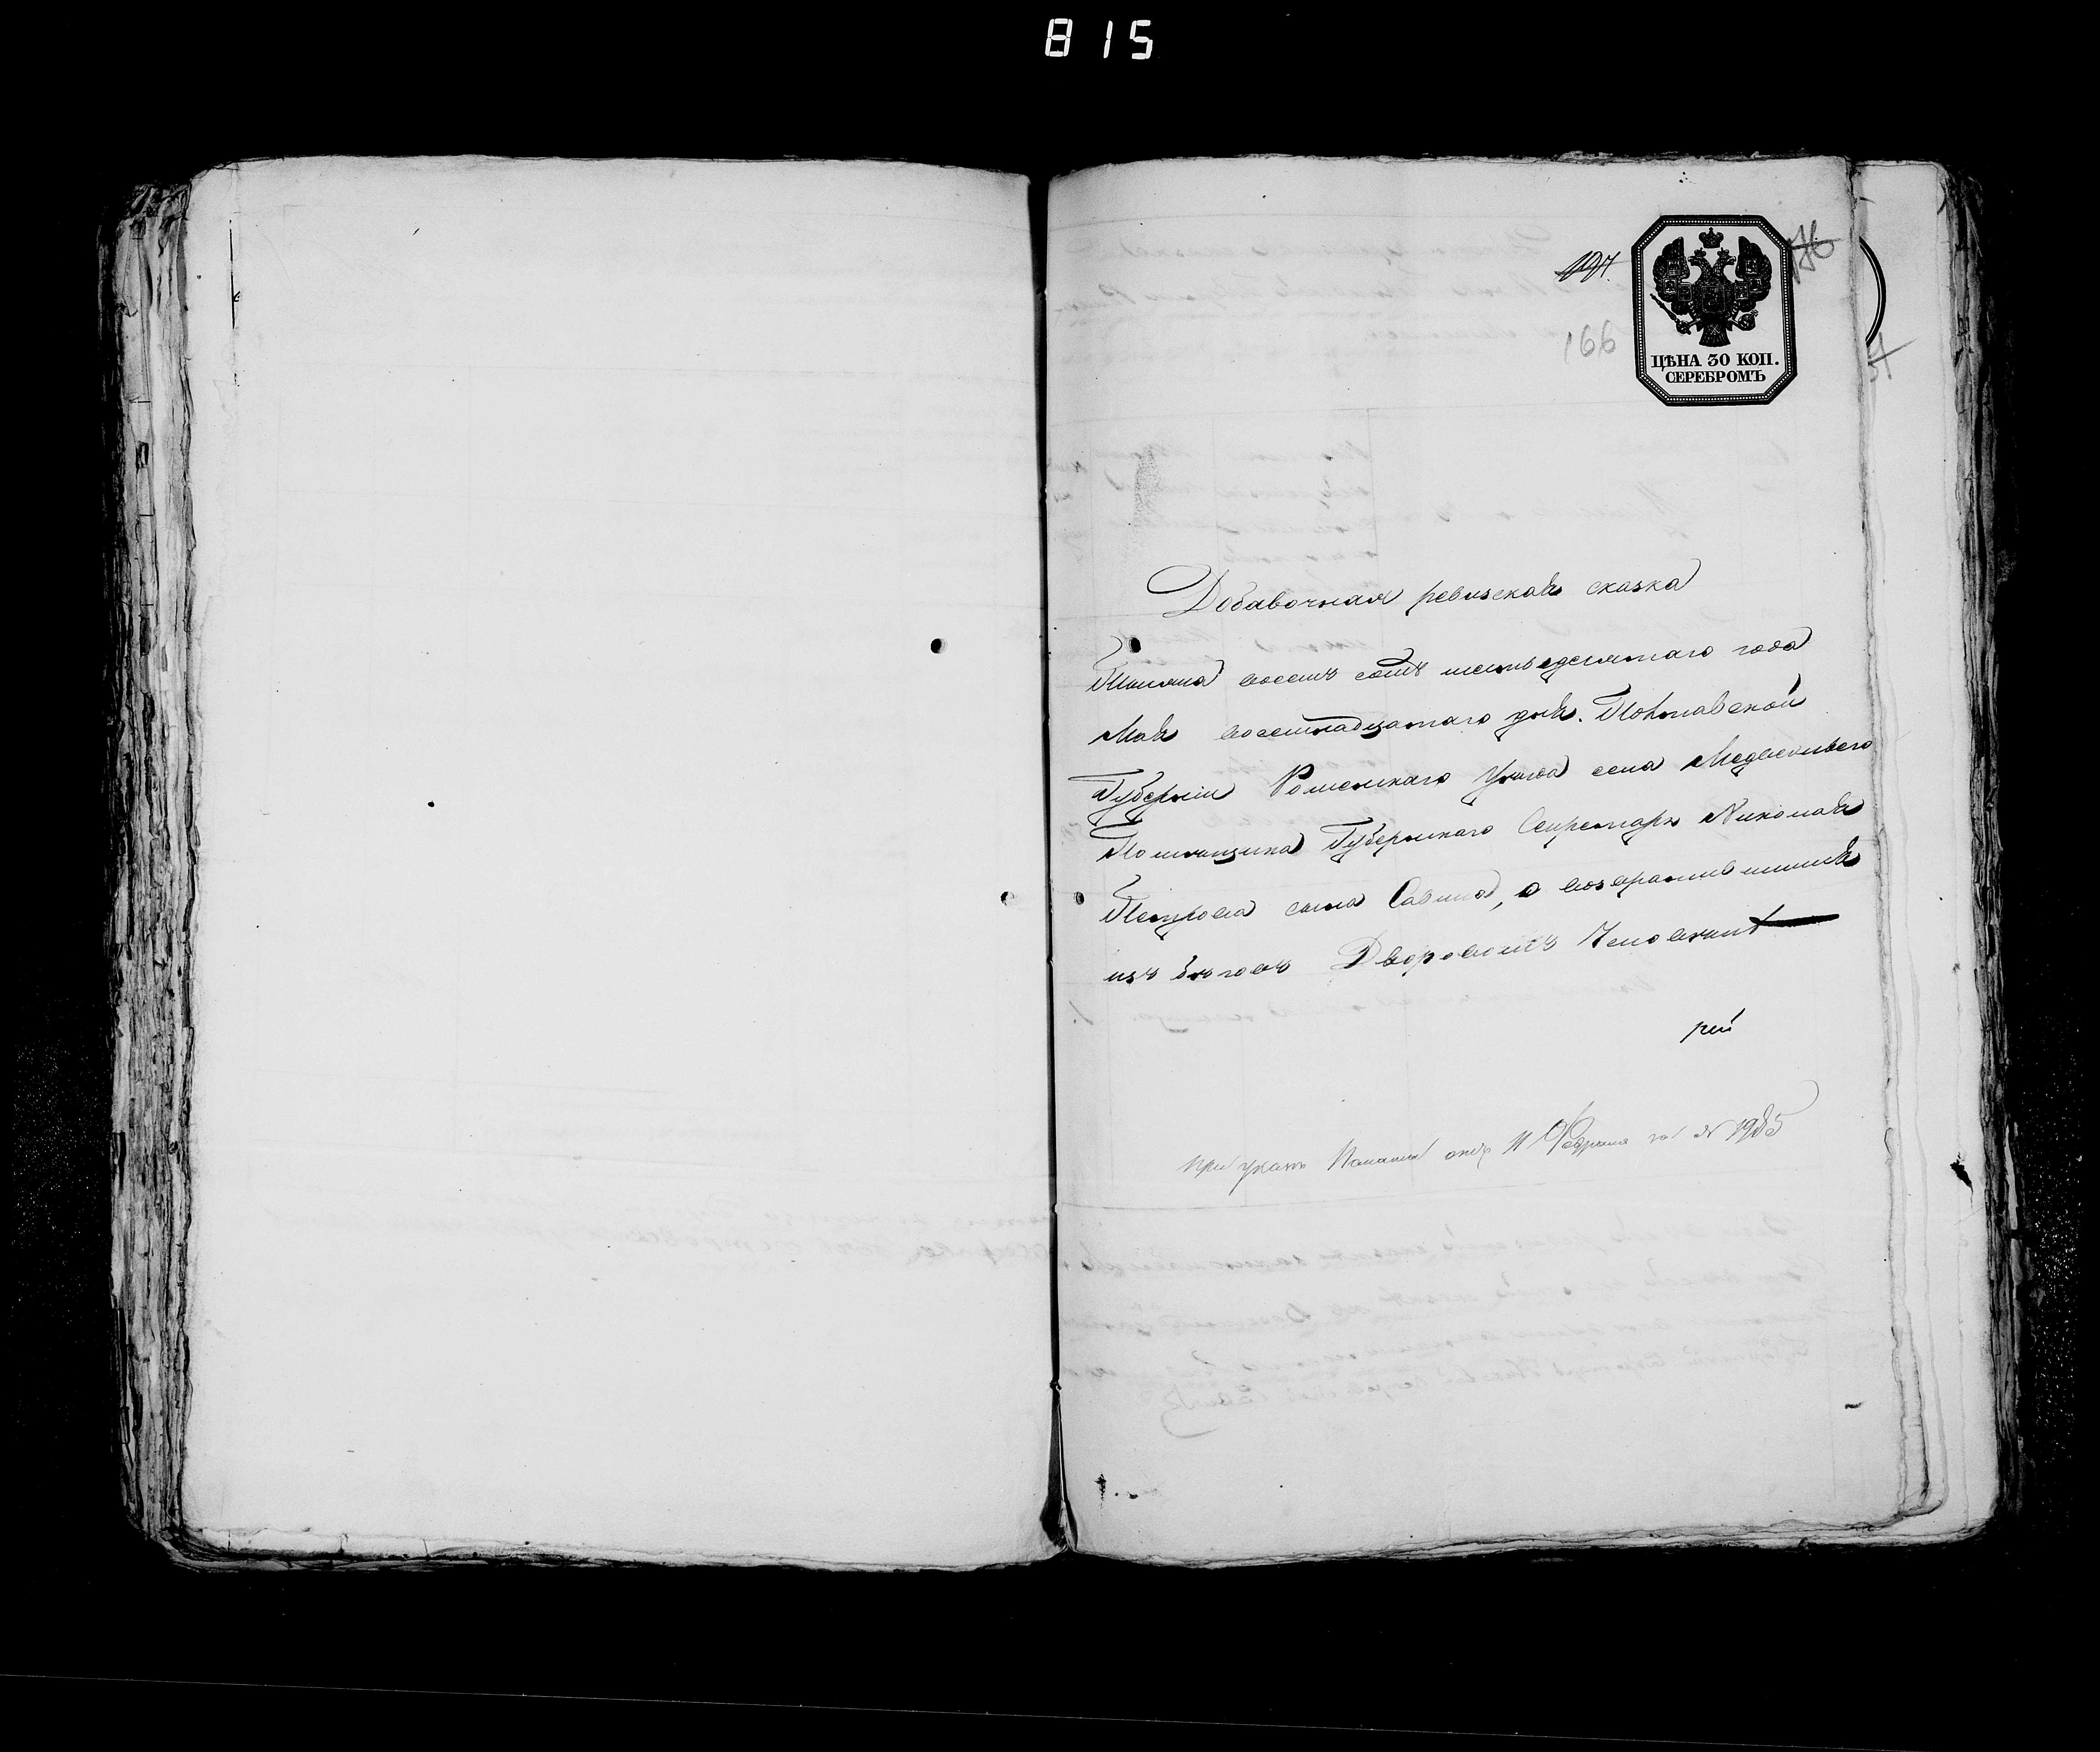 815
197.
166
ЦѢНА 30 КОП.
СЕРЕБРОМЪ
Добавочная ревизская сказка
Тысяча восемь сотъ шестьдесятаго года
Мая восемнадцатаго дня. Полтавской
Губерніи Роменскаго Уѣзда села Медвежьего
Помѣщика Губернскаго Секретаря Николая
Петрова сына Савича, о возвратившимся
изъ бѣговъ Дворовомъ Человѣкѣ
рей
при указѣ Палаты отъ 11 Февраля за № 1985